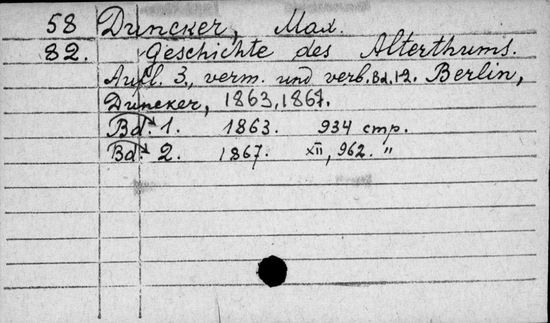 58 Duncker, Max.
82. Geschichte des Alterthums.
Aufl. 3, verm. und verb. Bd. 1-2. Berlin,
Duncker, 1863, 1867.
Bd. 1. 1863. 934 стр.
Bd. 2. 1867. XII, 962. "